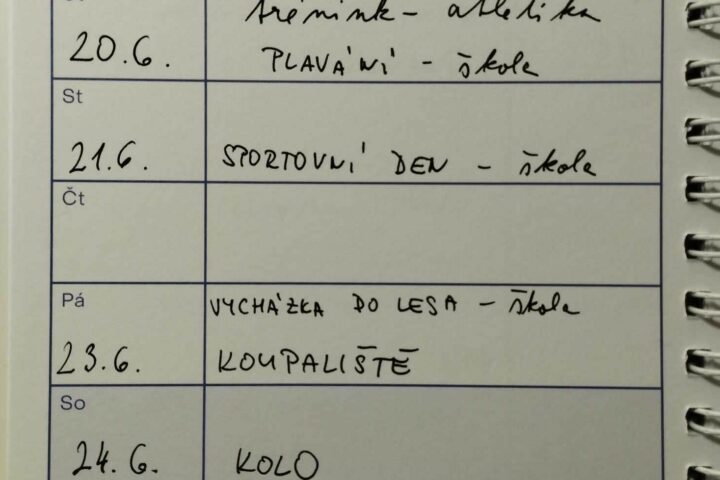 trénink - atletika
20.6.
PLAVÁNÍ - škola
St
21.6.
SPORTOVNÍ DEN - škola
Čt
Pá
VYCHÁZKA DO LESA - škola
23.6.
KOUPALIŠTĚ
So
24.6.
KOLO